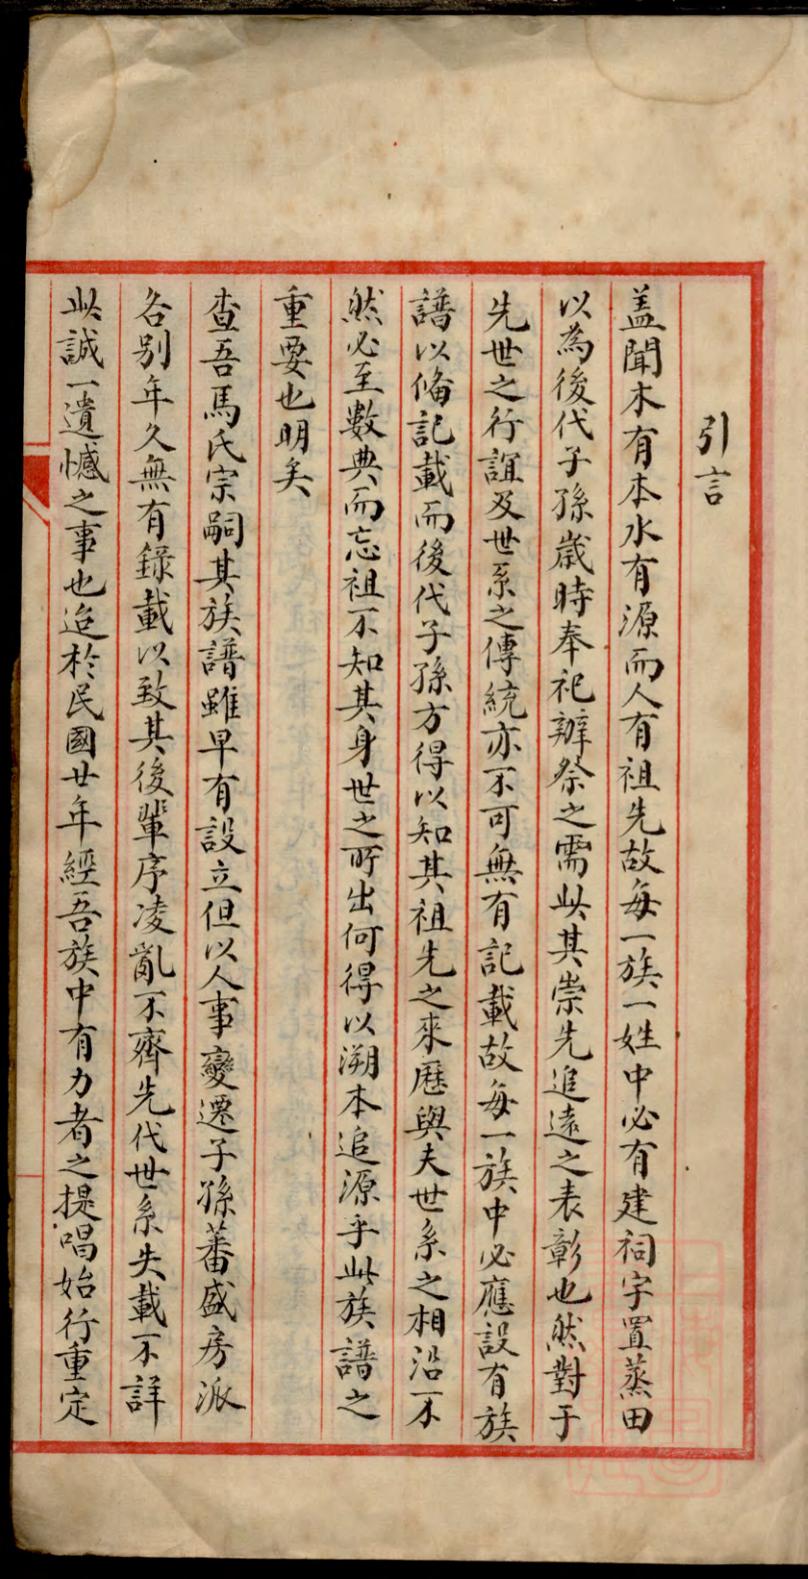 引言
盖聞木有本水有源而人有祖先故每一族一姓中必有建祠宇置蒸田
以為後代子孫歲時奉祀辦祭之需此其崇先追遠之表彰也然對于
先世之行誼及世系之傳統亦不可無有記載故每一族中必應設有族
譜以俻記載而後代子孫方得以知其祖先之來歷與夫世系之相沿不
然必至數典而忘祖不知其身世之所出何得以溯本追源乎此族譜之
重要也明矣
查吾馬氏宗嗣其族譜雖早有設立但以人事變遷子孫蕃盛房派
各别年久無有錄載以致其後輩序凌亂不齊先代世系失載不詳
此誠一遺憾之事也迨於民國廿年經吾族中有力者之提唱始行重定